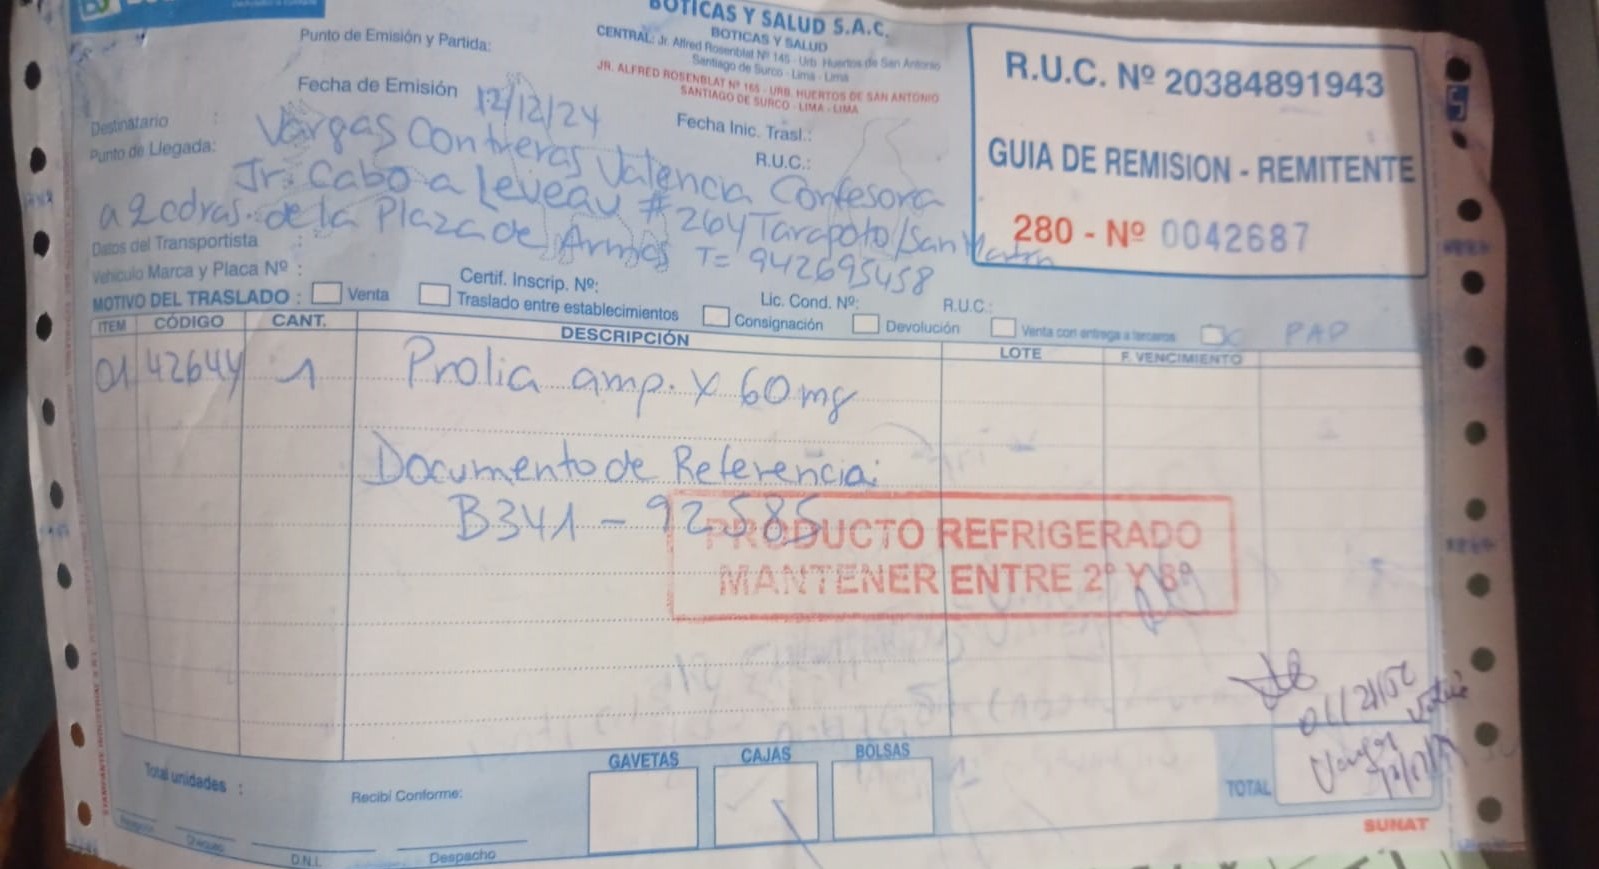 BOTICAS Y SALUD S.A.C.
BOTICAS Y SALUD
CENTRAL: Jr. Alfred Rosenblat Nº 145 - Urb. Huertos de San Antonio
Santiago de Surco - Lima - Lima
JR. ALFRED ROSENBLAT Nº 165 - URB. HUERTOS DE SAN ANTONIO
SANTIAGO DE SURCO - LIMA - LIMA
Punto de Emisión y Partida:
Fecha de Emisión 12/12/24
Fecha Inic. Trasl.:
R.U.C.:
R.U.C. Nº 20384891943
GUIA DE REMISION - REMITENTE
280 - Nº 0042687
Destinatario : Vargas Contreras Valencia Confesora
Punto de Llegada: Jr. Cabo a Leveau # 264 Tarapoto/San Martin
a 2 cdras. de la Plaza de Armas T= 942695458
Datos del Transportista :
Vehículo Marca y Placa Nº :
Certif. Inscrip. Nº:
Lic. Cond. Nº:
R.U.C.:
MOTIVO DEL TRASLADO : Venta Traslado entre establecimientos Consignación Devolución Venta con entrega a terceros PAP
ITEM CÓDIGO CANT. DESCRIPCIÓN LOTE F. VENCIMIENTO
01 42644 1 Prolia amp. x 60mg
Documento de Referencia:
B341 - 92585
PRODUCTO REFRIGERADO
MANTENER ENTRE 2° Y 8°
Total unidades :
Recibí Conforme:
GAVETAS CAJAS BOLSAS
TOTAL
Chequeo
D.N.I.
Despacho
SUNAT